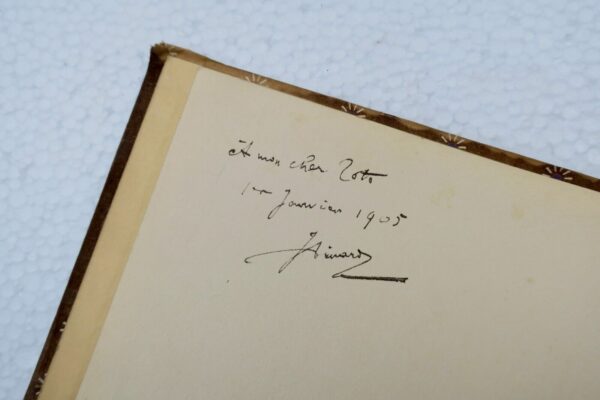 A mon cher Toto
1er Janvier 1905